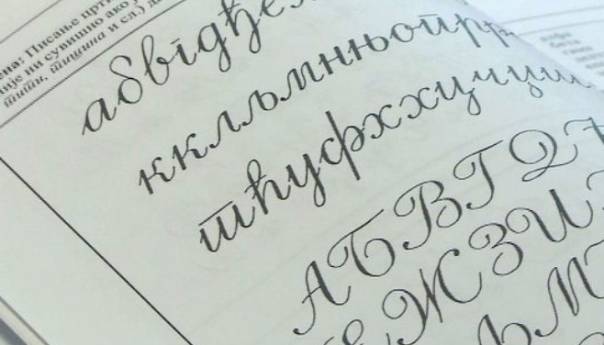 ена: Писање црти
ије ни сувишно ако у
тити, тишина и сл.) да
абвгдђе
кклљмнњопрр
тћуфххцчџш
АБВГД
ЕЖЗИ
ЉМ